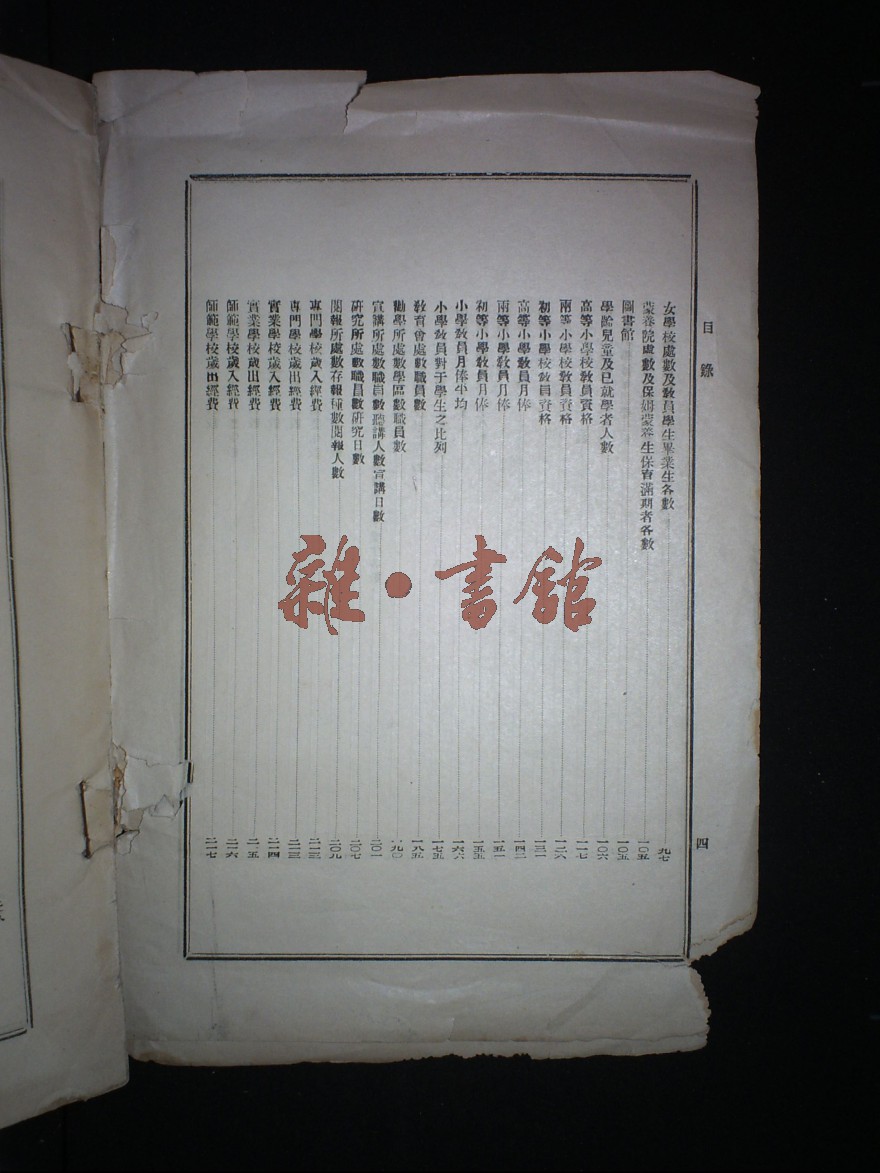 目錄
四
女學校處數及敎員學生畢業生各數 九七
蒙養院處數及保姆蒙養生保育滿期者各數 一〇五
圖書館 一〇五
學齡兒童及已就學者人數 一〇六
高等小學校敎員資格 一一七
兩等小學校敎員資格 一二六
初等小學校敎員資格 一三一
高等小學敎員月俸 一四二
兩等小學敎員月俸 一五一
初等小學敎員月俸 一五五
小學敎員月俸平均 一六六
小學敎員對于學生之比列 一七五
敎育會處數職員數 一八五
勸學所處數學區數職員數 一九〇
宣講所處數職員數聽講人數宣講日數 二〇一
研究所處數職員數研究日數 二〇七
閱報所處數存報種數閱報人數 二〇九
專門學校歲入經費 二一三
專門學校歲出經費 二一三
實業學校歲入經費 二一四
實業學校歲出經費 二一五
師範學校歲入經費 二一六
師範學校歲出經費 二一七
雜·書館